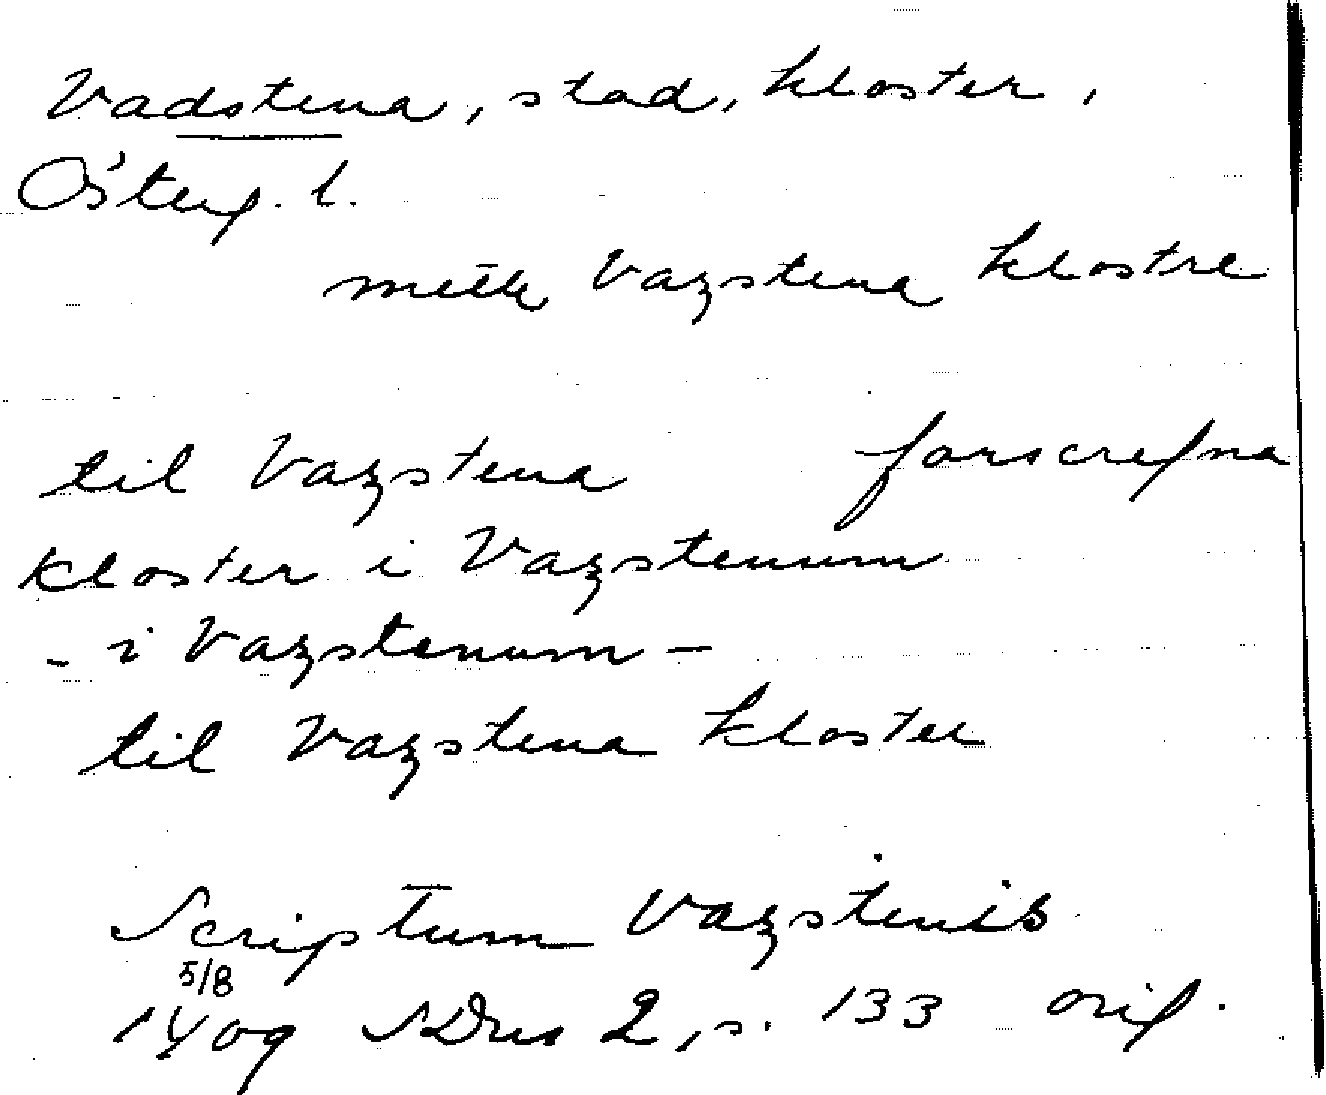 Vadstena, stad, kloster,
Österg. l.
mellr Vazstena klostre
til Vazstena forscrefna
kloster i Vazstenum
- i Vazstenum -
til Vazstena kloster
Scriptum Vazstenis
5/8
1409 SDns 2, s. 133 orig.